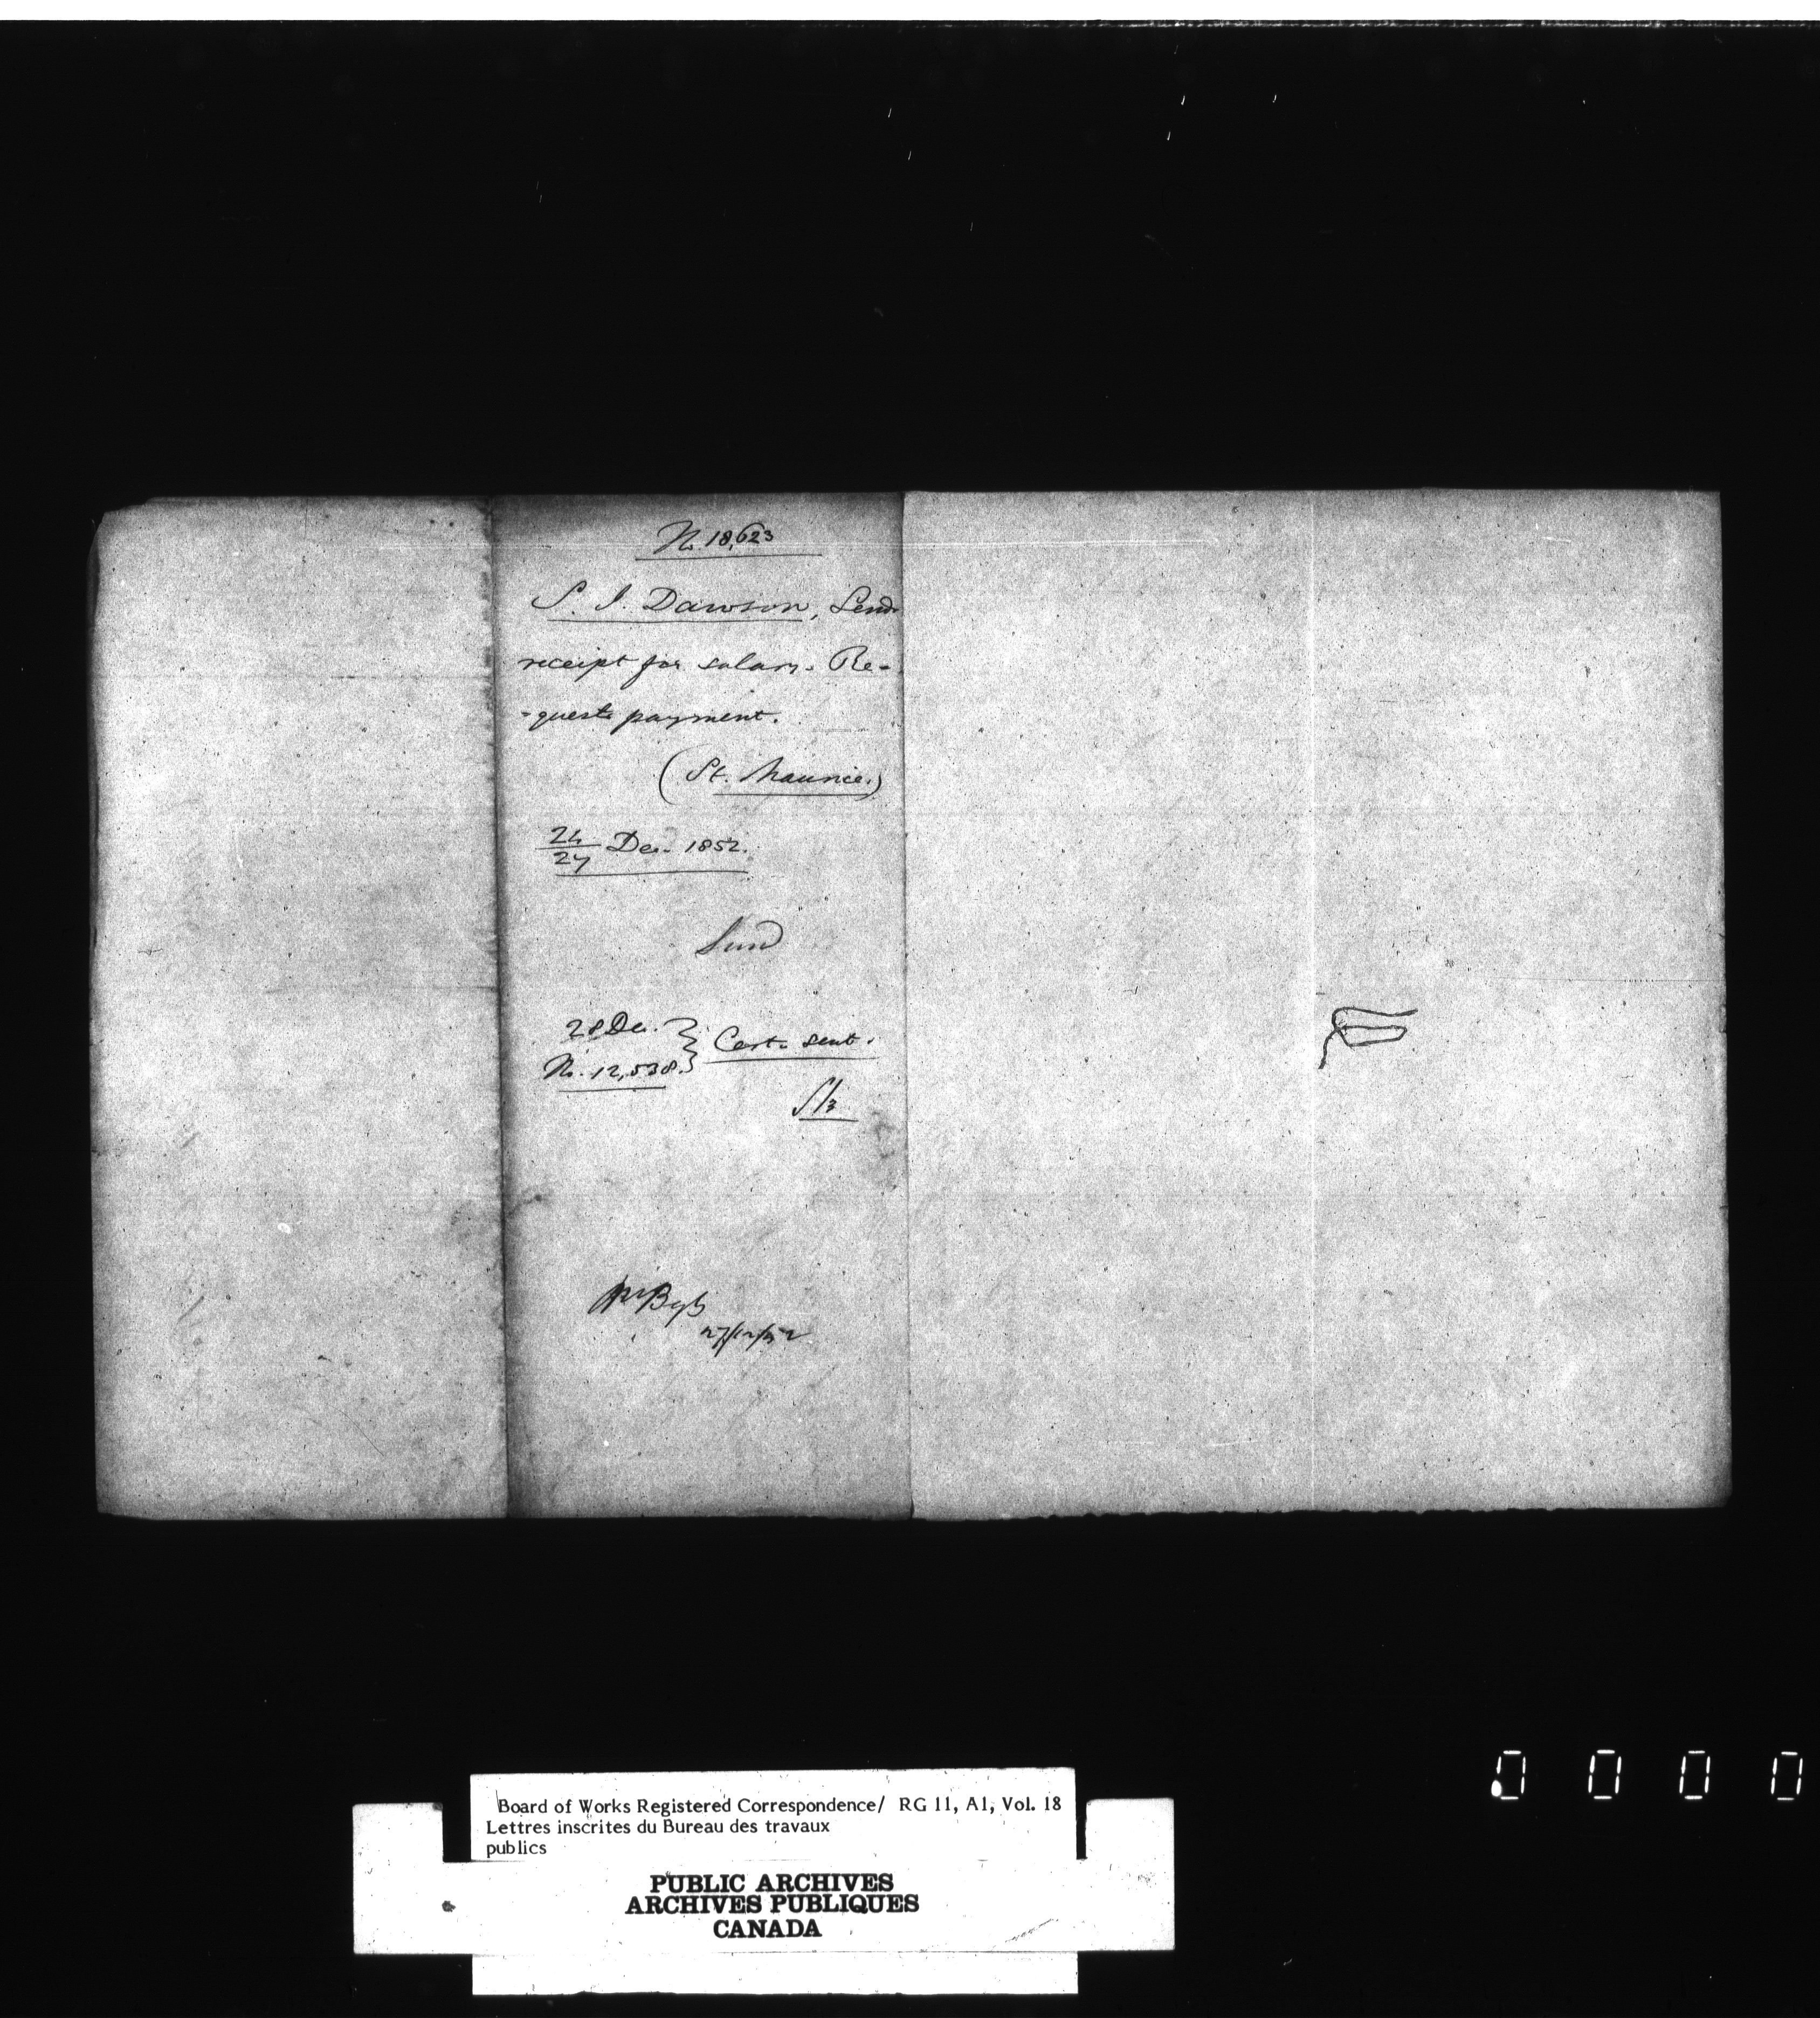 No. 18,623
S. J. Dawson, Sends
receipt for salary. Re-
-quests payment.
(St. Maurice.)
24/27 Dec. 1852.
28 Dec.
No. 12,538.} Cert. sent.
27/12/52
Board of Works Registered Correspondence/ RG 11, A1, Vol. 18
Lettres inscrites du Bureau des travaux
publics
PUBLIC ARCHIVES
ARCHIVES PUBLIQUES
CANADA
0 0 0 0